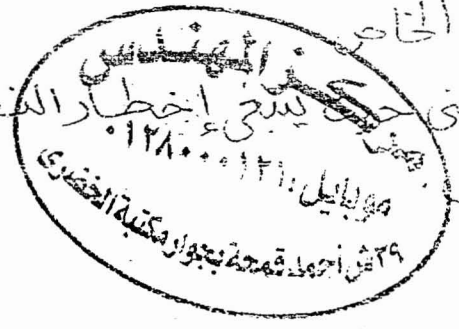 الخاص
مركز المهندس
حيث ينبغي إخطار
موبايل: ٠١٢٨٠٠٠١٢١
٢٩ش أحمد قمحة بجوار مكتبة الخضرى